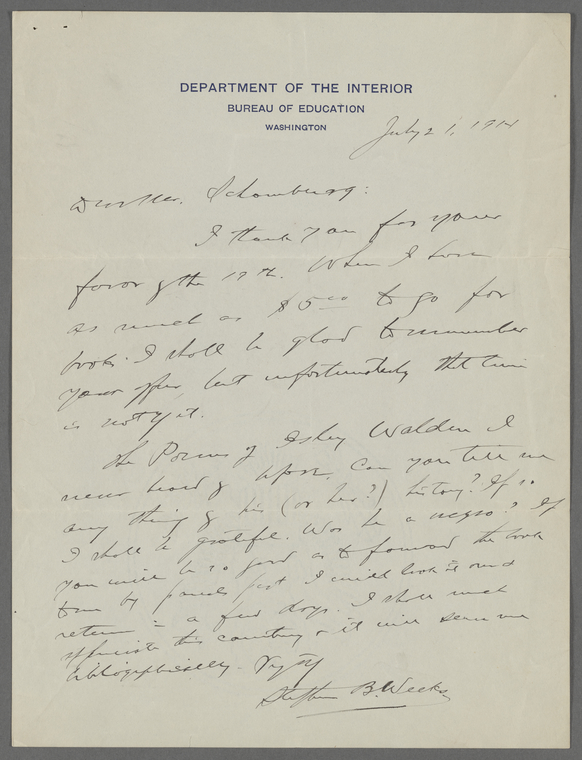 DEPARTMENT OF THE INTERIOR
BUREAU OF EDUCATION
WASHINGTON
July 21, 1914
Dear Mr. Schomburg:
I thank you for your
favor of the 19th. When I have
as much as $5.00 to go for
books I shall be glad to remember
your offer, but unfortunately that time
is not yet.
The Poems of Isley Walden I
never heard of before. Can you tell me
any thing of his (or her?) history? If so
I shall be grateful. Was he a negro? If
you will be so good as to forward the book
to me by parcels post I will look it over &
return in a few days. I shall much
appreciate this courtesy & it will serve me
bibliographically.
Stephen B. Weeks